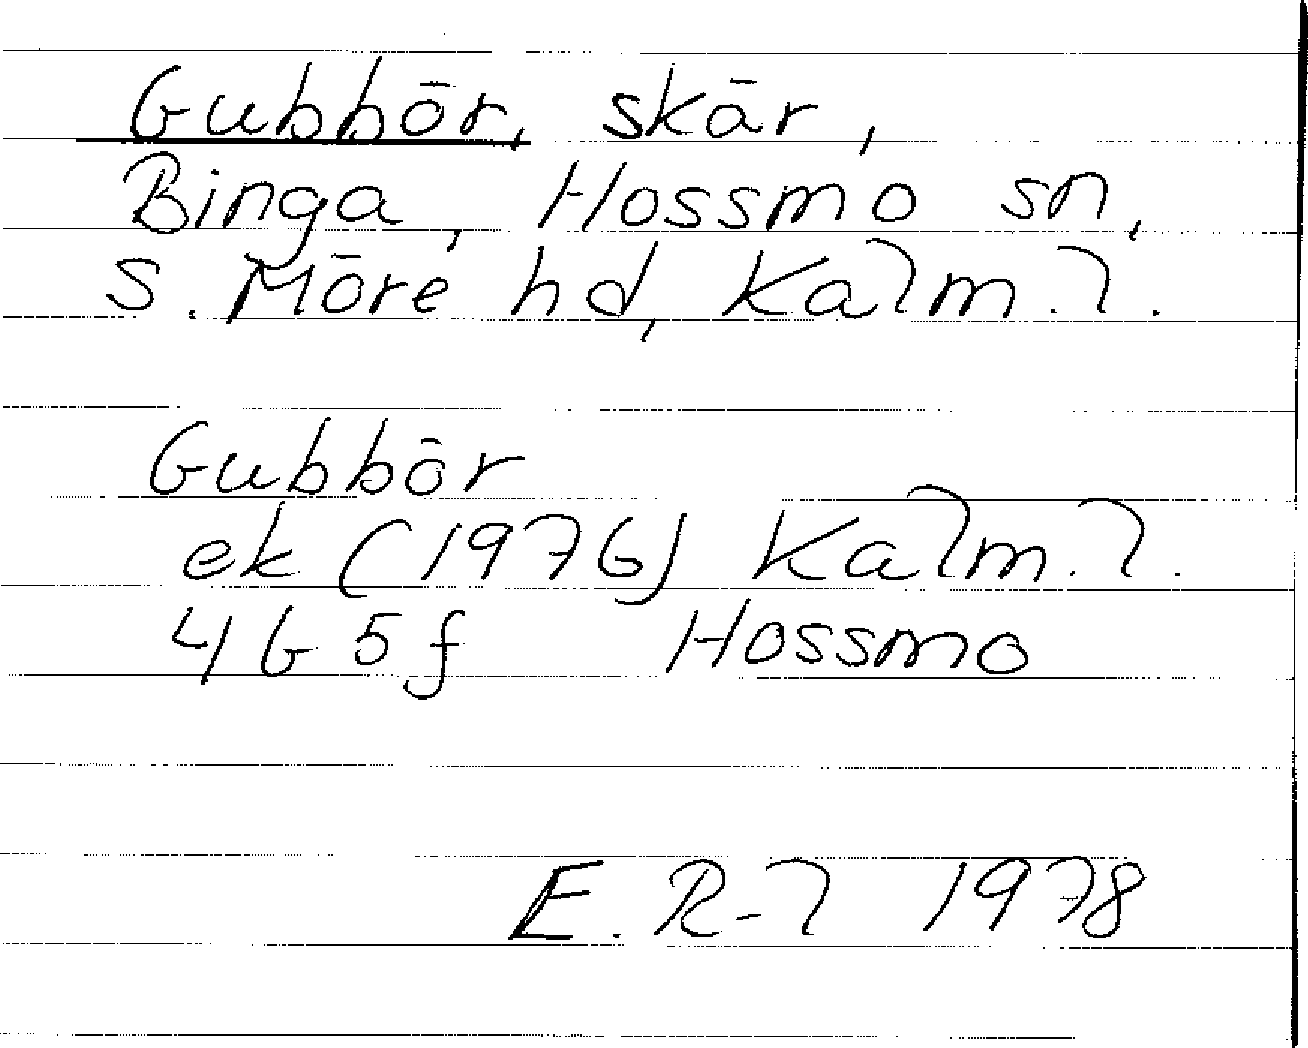 Gubbör, skär,
Binga, Hossmo sn,
S. Möre hd, Kalm. l.
Gubbör
ek (1976) Kalm. l.
4G 5f Hossmo
E. R-l 1978